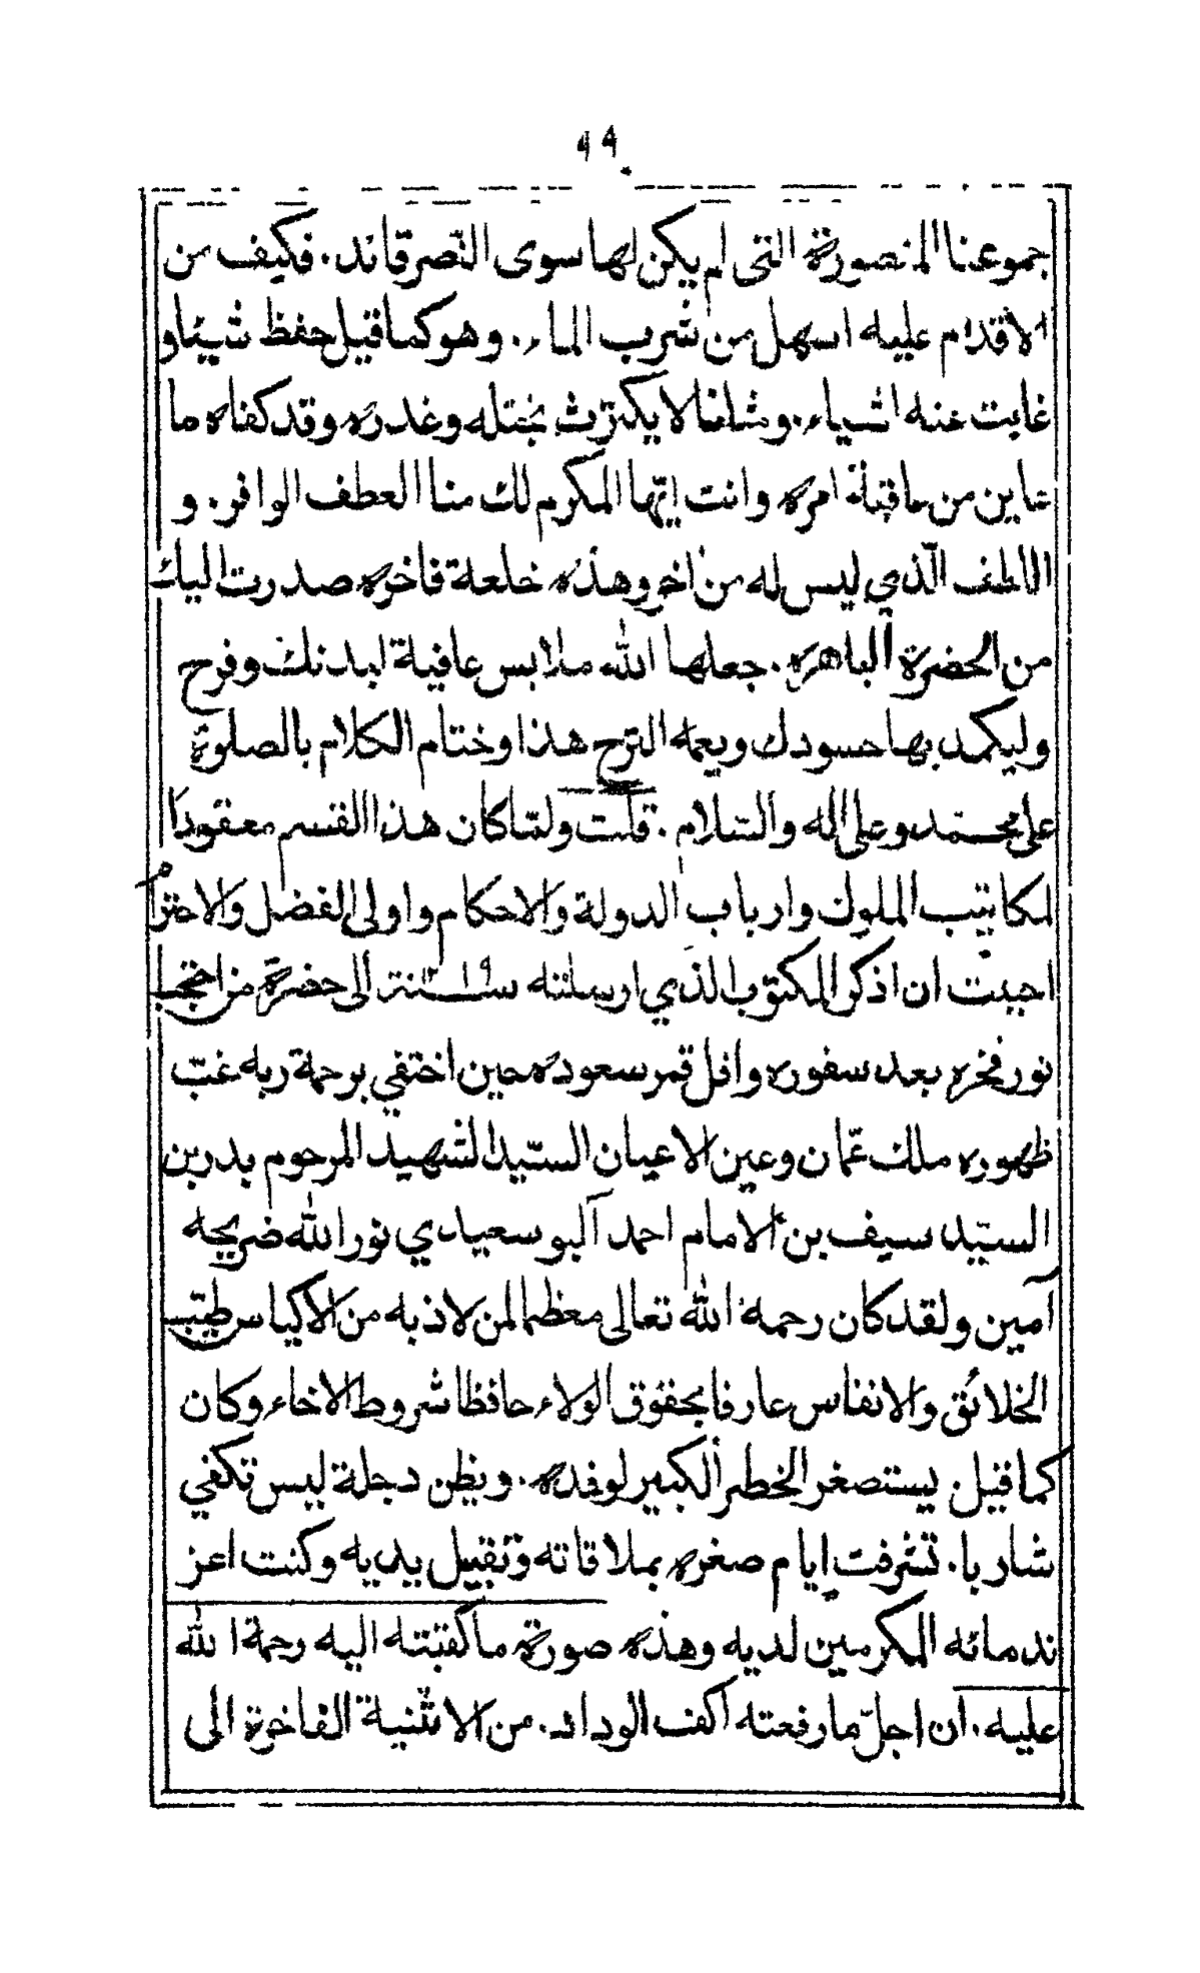 ٩٩
جموعنا المنصورة التي لم يكن لها سوى النّصر قائد. فكيف من
الاقدام عليه اسهل من شرب الماء. وهو كما قيل حفظ شيئا و
غابت عنه اشياء. ومثلنا لا يكترث بختله وغدره وقد كفاه ما
عاين من عاقبة امره وانت ايّها المكرم لك منا العطف الوافر. و
اللطف الّذي ليس له من اخر وهذه خلعة فاخره صدرت اليك
من الحضرة الباهره. جعلها الله ملابس عافية لبدنك وفرح
وليكمد بها حسودك ويعمه الترح هذا وختام الكلام بالصلوة
على محمّد وعلى اله والسّلام. قلت ولمّا كان هذا القسم معقودا
لمكاتيب الملوك وارباب الدولة والاحكام واولى الفضل والاحترام
احببت ان اذكر المكتوب الذي ارسلته سنة ١٢١٩ الى حضرة من احتجب
نور فخره بعد سفوره وافل قمر سعوده حين اختفي برحمة ربه غبّ
ظهوره ملك عمّان وعين الاعيان السيّد الشهيد المرحوم بدر بن
السيّد سيف بن الامام احمد آلبو سعيدي نور الله ضريحه
آمين ولقد كان رحمة الله تعالى معظما لمن لاذ به من الاكياس طيّب
الخلائق والانفاس عارفا بحقوق الولاء حافظا شروط الاخاء وكان
كما قيل يستصغر الخطر الكبير لوفده. ويظن دجلة ليس تكفي
شاربا. تشرفت ايام صغره بملاقاته وتقبيل يديه وكنت اعز
ندمائه المكرمين لديه وهذه صورة ما كتبته اليه رحمة الله
عليه. ان اجلّ ما رفعته اكف الوداد. من الاثنية الفاخرة الى